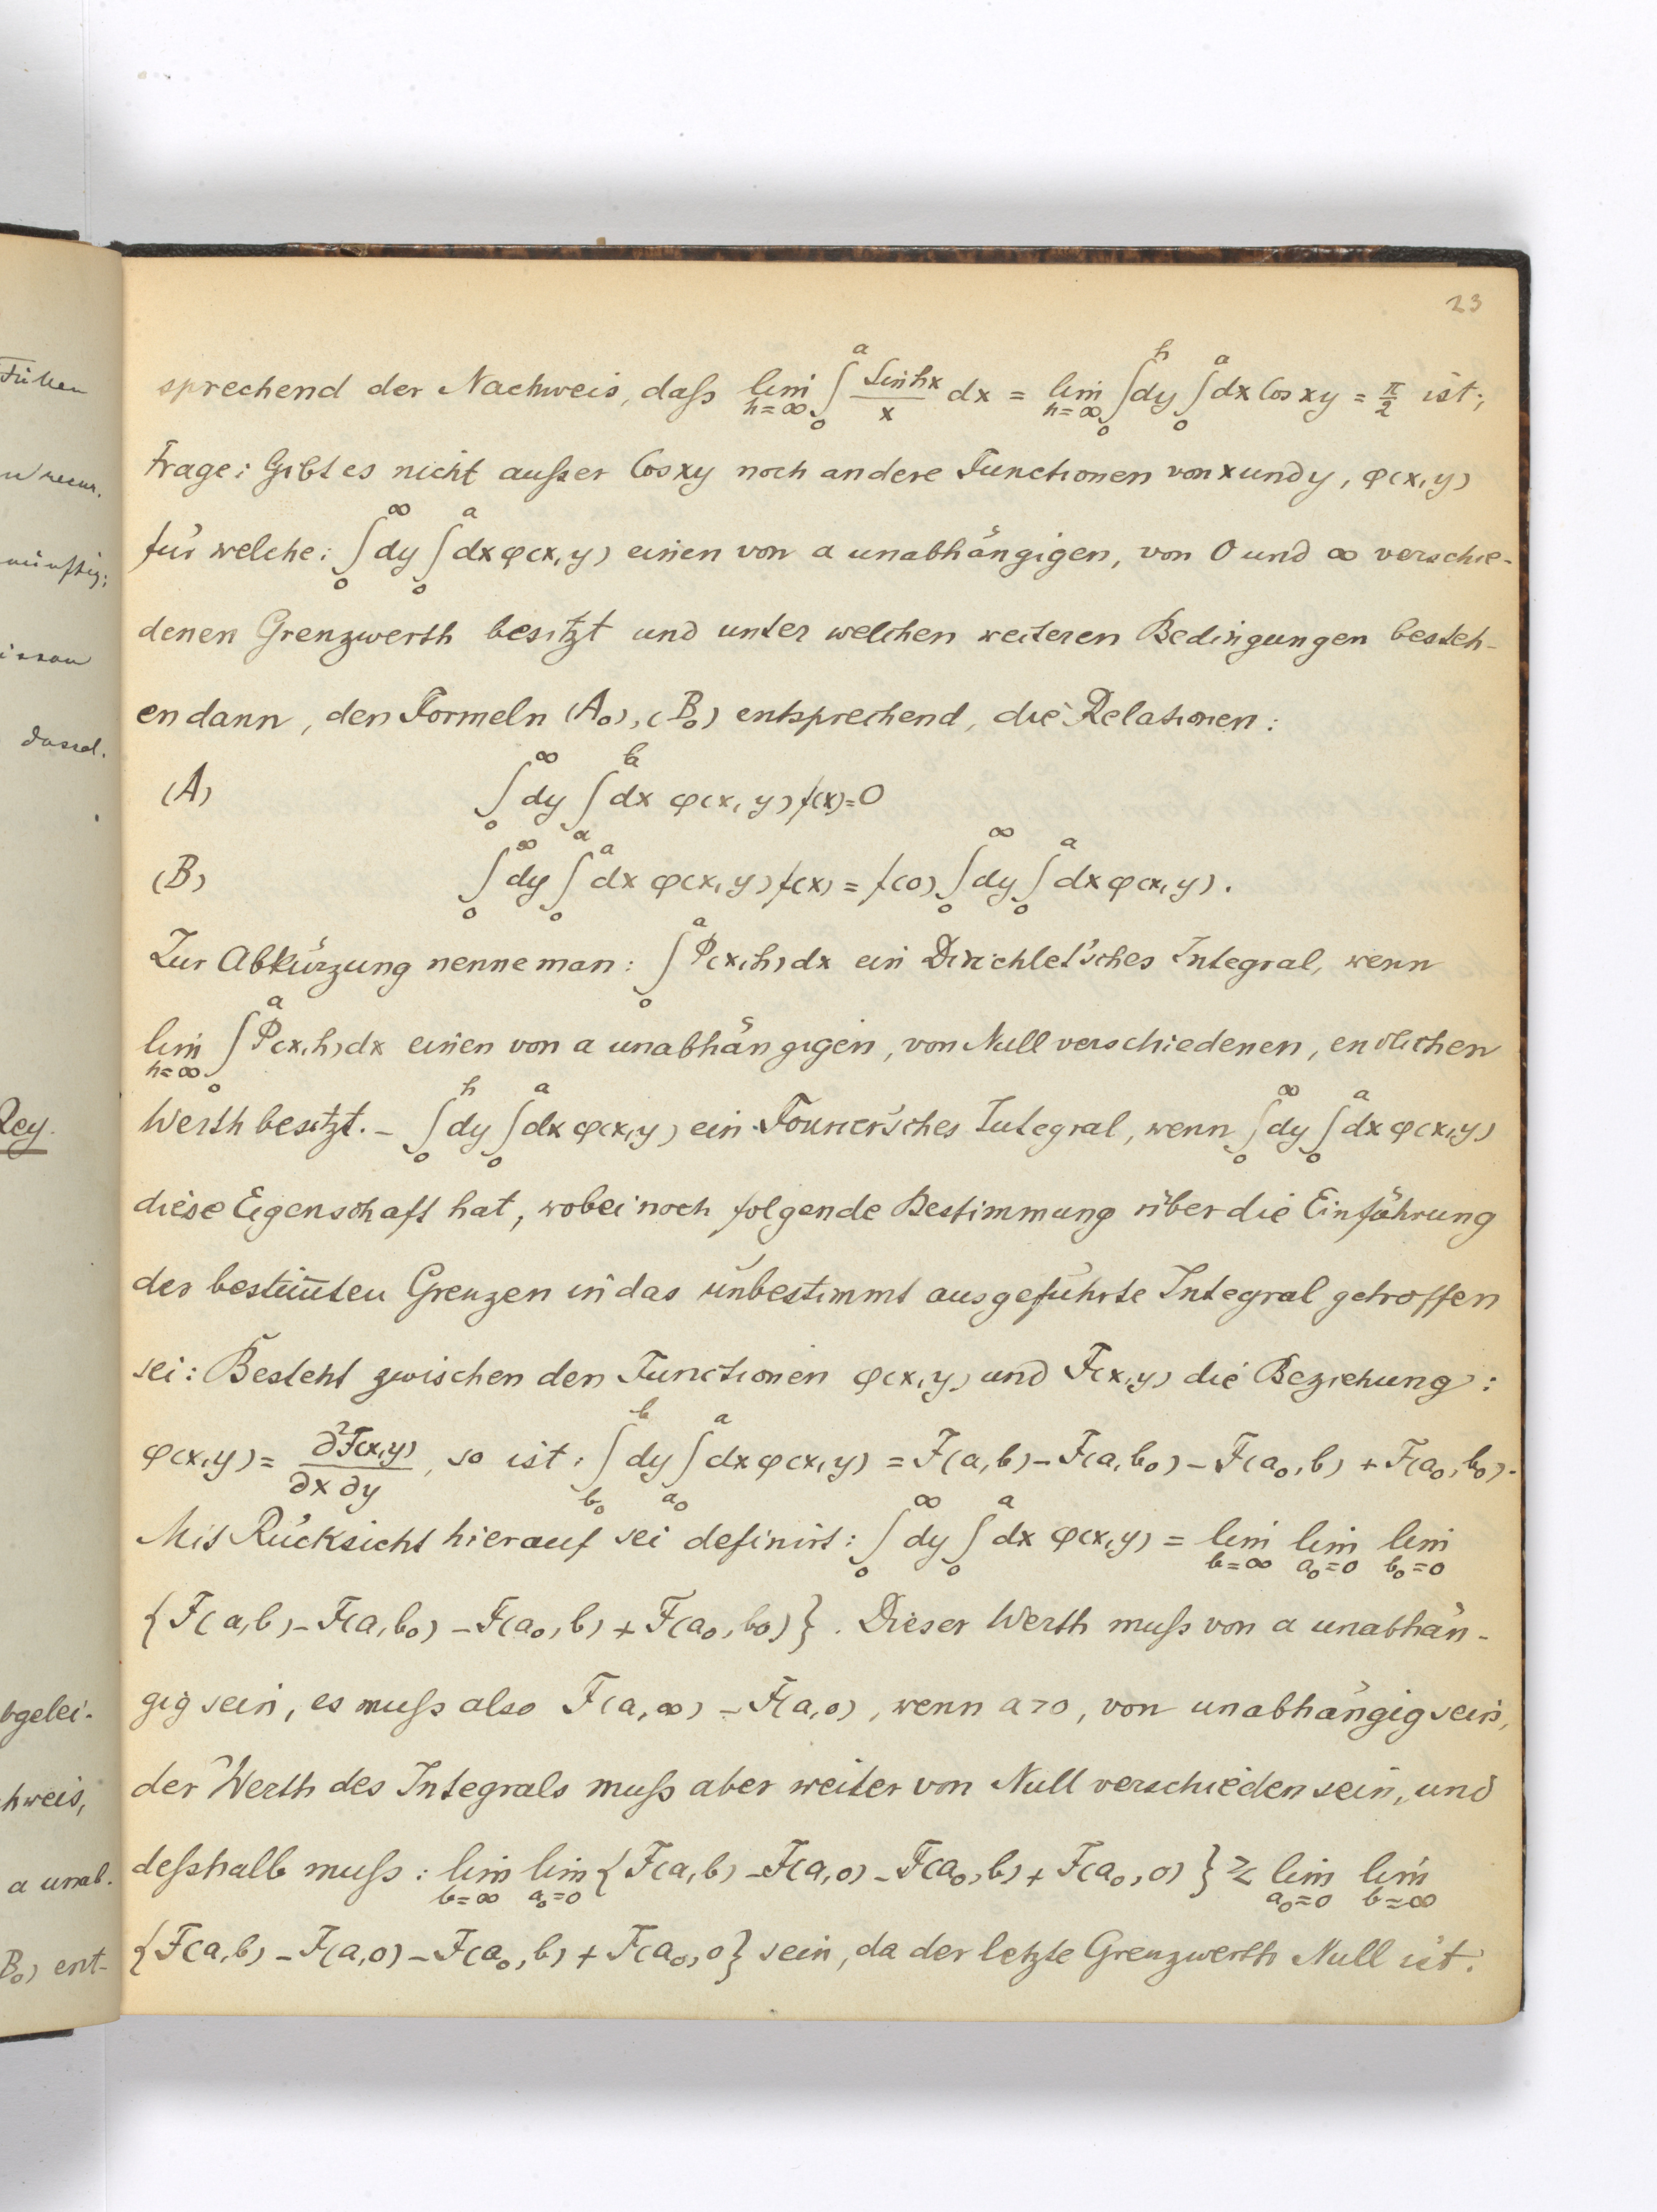 23
sprechend der Nachweis, daſs lim h=∞ ∫₀ᵃ Sinhx/x dx = lim h=∞ ∫₀ʰ dy ∫₀ᵃ dx Cosxy = π/2 ist;
Frage: Gibt es nicht auſser Cosxy noch andere Functionen von x und y, φ(x,y)
für welche: ∫₀^∞ dy ∫₀ᵃ dx φ(x,y) einen von a unabhängigen, von 0 und ∞ verschie-
denen Grenzwerth besitzt und unter welchen weiteren Bedingungen besteh-
en dann, den Formeln (A₀), (B₀) entsprechend, die Relationen:
(A) ∫₀^∞ dy ∫ₐᵇ dx φ(x,y) f(x) = 0
(B) ∫₀^∞ dy ∫₀ᵃ dx φ(x,y) f(x) = f(0) ∫₀^∞ dy ∫₀ᵃ dx φ(x,y).
Zur Abkürzung nenne man: ∫₀ᵃ Φ(x,h)dx ein Dirichlet'sches Integral, wenn
lim h=∞ ∫₀ᵃ Φ(x,h)dx einen von a unabhängigen, von Null verschiedenen, endlichen
Werth besitzt. – ∫₀ʰ dy ∫₀ᵃ dx φ(x,y) ein Fourier'sches Integral, wenn ∫₀^∞ dy ∫₀ᵃ dx φ(x,y)
diese Eigenschaft hat, wobei noch folgende Bestimmung über die Einführung
der bestim̅ten Grenzen in das unbestimmt ausgeführte Integral getroffen
sei: Besteht zwischen den Functionen φ(x,y) und F(x,y) die Beziehung:
φ(x,y) = ∂²F(x,y)/∂x∂y, so ist: ∫_b₀^b dy ∫_a₀^a dx φ(x,y) = F(a,b) – F(a,b₀) – F(a₀,b) + F(a₀,b₀).
Mit Rücksicht hierauf sei definirt: ∫₀^∞ dy ∫₀ᵃ dx φ(x,y) = lim b=∞ lim a₀=0 lim b₀=0
{F(a,b) – F(a,b₀) – F(a₀,b) + F(a₀,b₀)}. Dieser Werth muſs von a unabhän-
gig sein, es muſs also F(a,∞) – F(a,0), wenn a>0, von unabhängig sein,
der Werth des Integrals muſs aber weiter von Null verschieden sein, und
deſshalb muſs: lim b=∞ lim a₀=0 {F(a,b) – F(a,0) – F(a₀,b) + F(a₀,0)} ≷ lim a₀=0 lim b=∞
{F(a,b) – F(a,0) – F(a₀,b) + F(a₀,0} sein, da der letzte Grenzwerth Null ist.
dassel.
Rey.
bgelei-
hweis,
a unab.
B₀) ent-